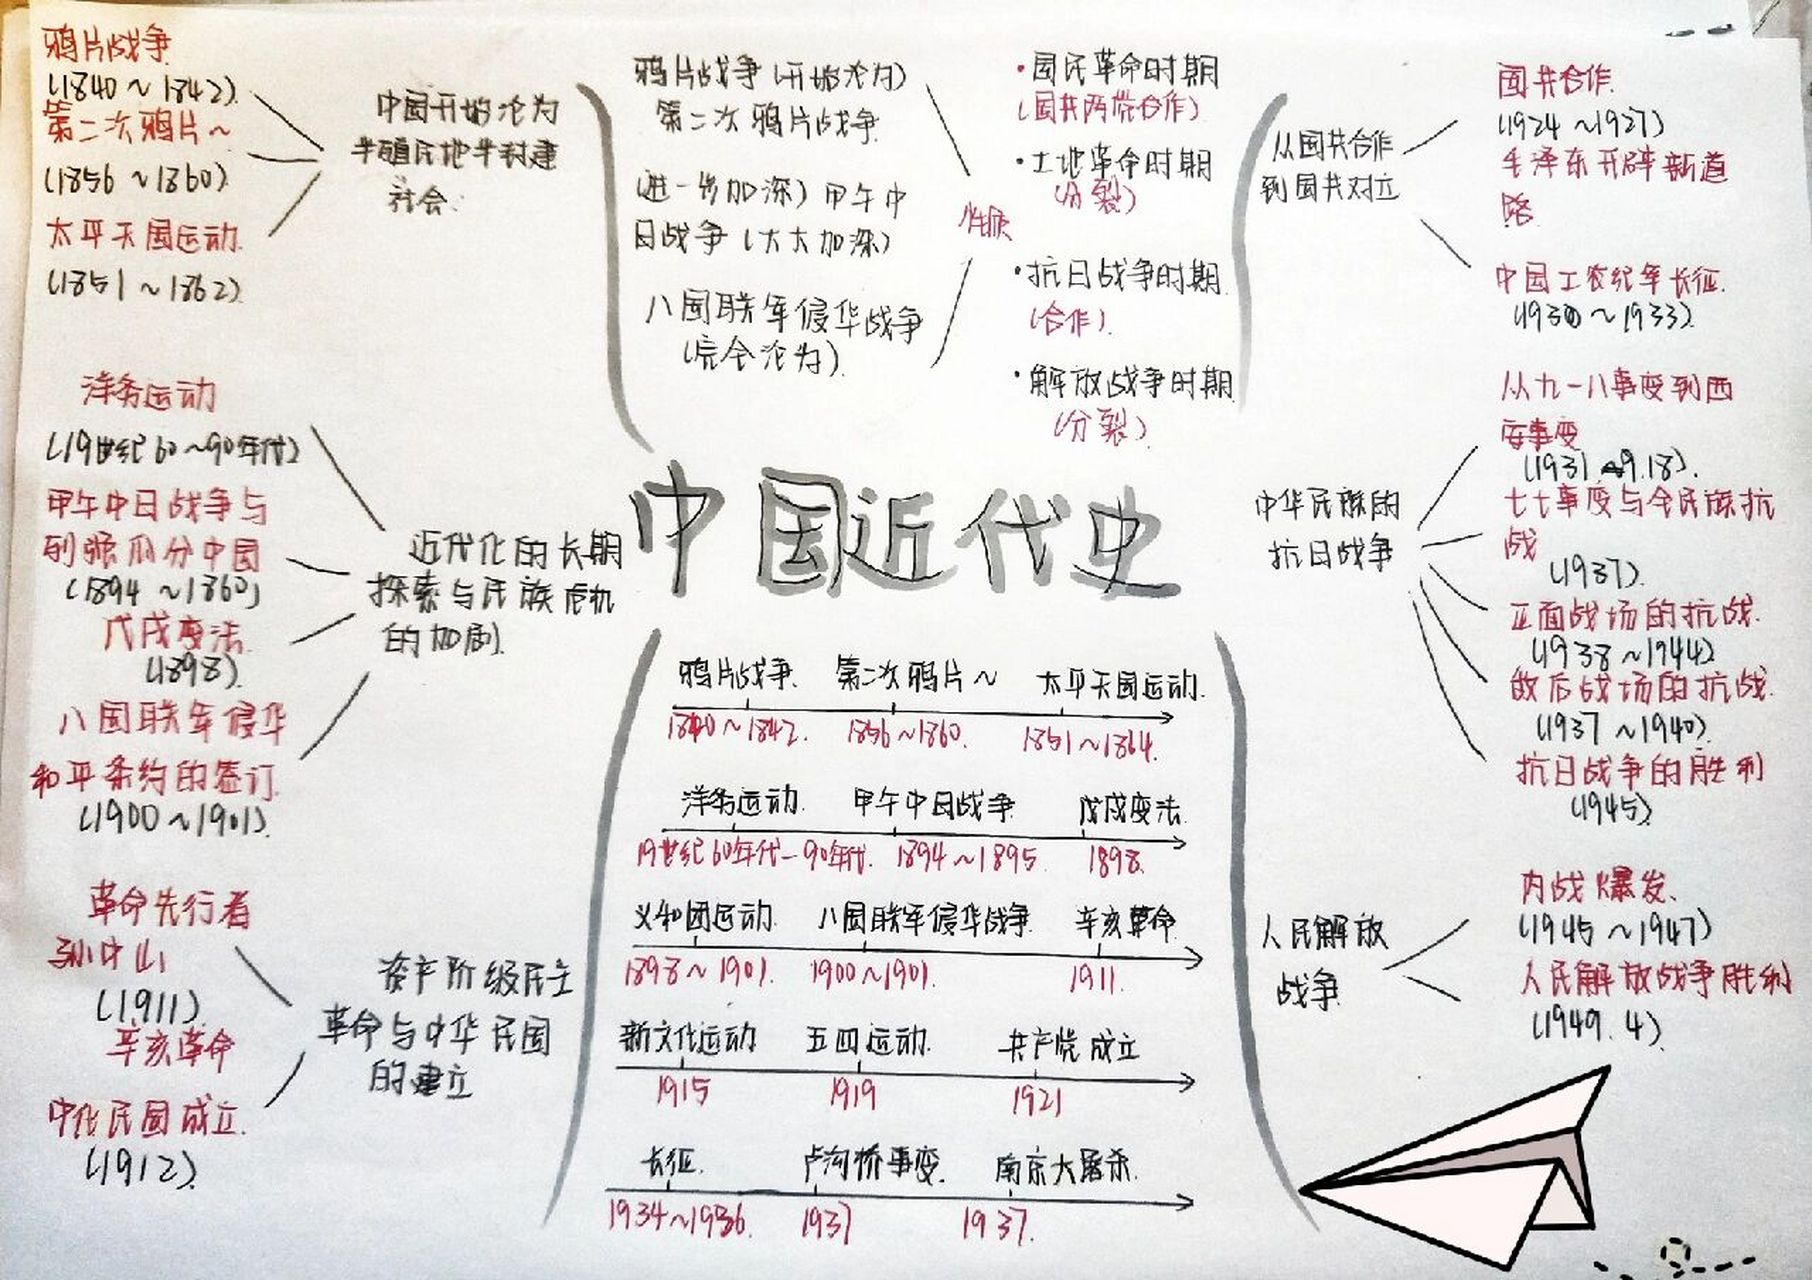 鸦片战争
(1840～1842).
第二次鸦片～
(1856～1860).
太平天国运动.
(1851～1862).
中国开始沦为
半殖民地半封建
社会.
洋务运动
(19世纪60～90年代)
甲午中日战争与
列强瓜分中国
(1894～1860)
戊戌变法.
(1898).
八国联军侵华
和平条约的签订.
(1900～1901).
近代化的长期
探索与民族危机
的加剧.
革命先行者
孙中山
(1911)
辛亥革命
中化民国成立.
(1912).
资产阶级民主
革命与中华民国
的建立
鸦片战争(开始沦为)
第二次鸦片战争
(进一步加深)甲午中
日战争(大大加深)
八国联军侵华战争
(完全沦为).
性质
·国民革命时期
(国共两党合作)
·土地革命时期
(分裂)
·抗日战争时期.
(合作).
·解放战争时期.
(分裂).
中国近代史
鸦片战争. 第二次鸦片～ 太平天国运动.
1840～1842. 1856～1860. 1851～1864.
洋务运动. 甲午中日战争. 戊戌变法.
19世纪60年代-90年代. 1894～1895. 1898.
义和团运动. 八国联军侵华战争. 辛亥革命.
1898～1901. 1900～1901. 1911.
新文化运动 五四运动. 共产党成立
1915 1919 1921
长征. 卢沟桥事变. 南京大屠杀.
1934～1936. 1937 1937.
从国共合作
到国共对立
国共合作.
(1924～1927)
毛泽东开辟新道
路.
中国工农红军长征.
(1930～1933).
中华民族的
抗日战争
从九一八事变到西
安事变
(1931 9.18).
七七事变与全民族抗
战
(1937).
正面战场的抗战.
(1938～1944)
敌后战场的抗战.
(1937～1940).
抗日战争的胜利
(1945)
人民解放
战争.
内战爆发.
(1945～1947)
人民解放战争胜利
(1949.4).